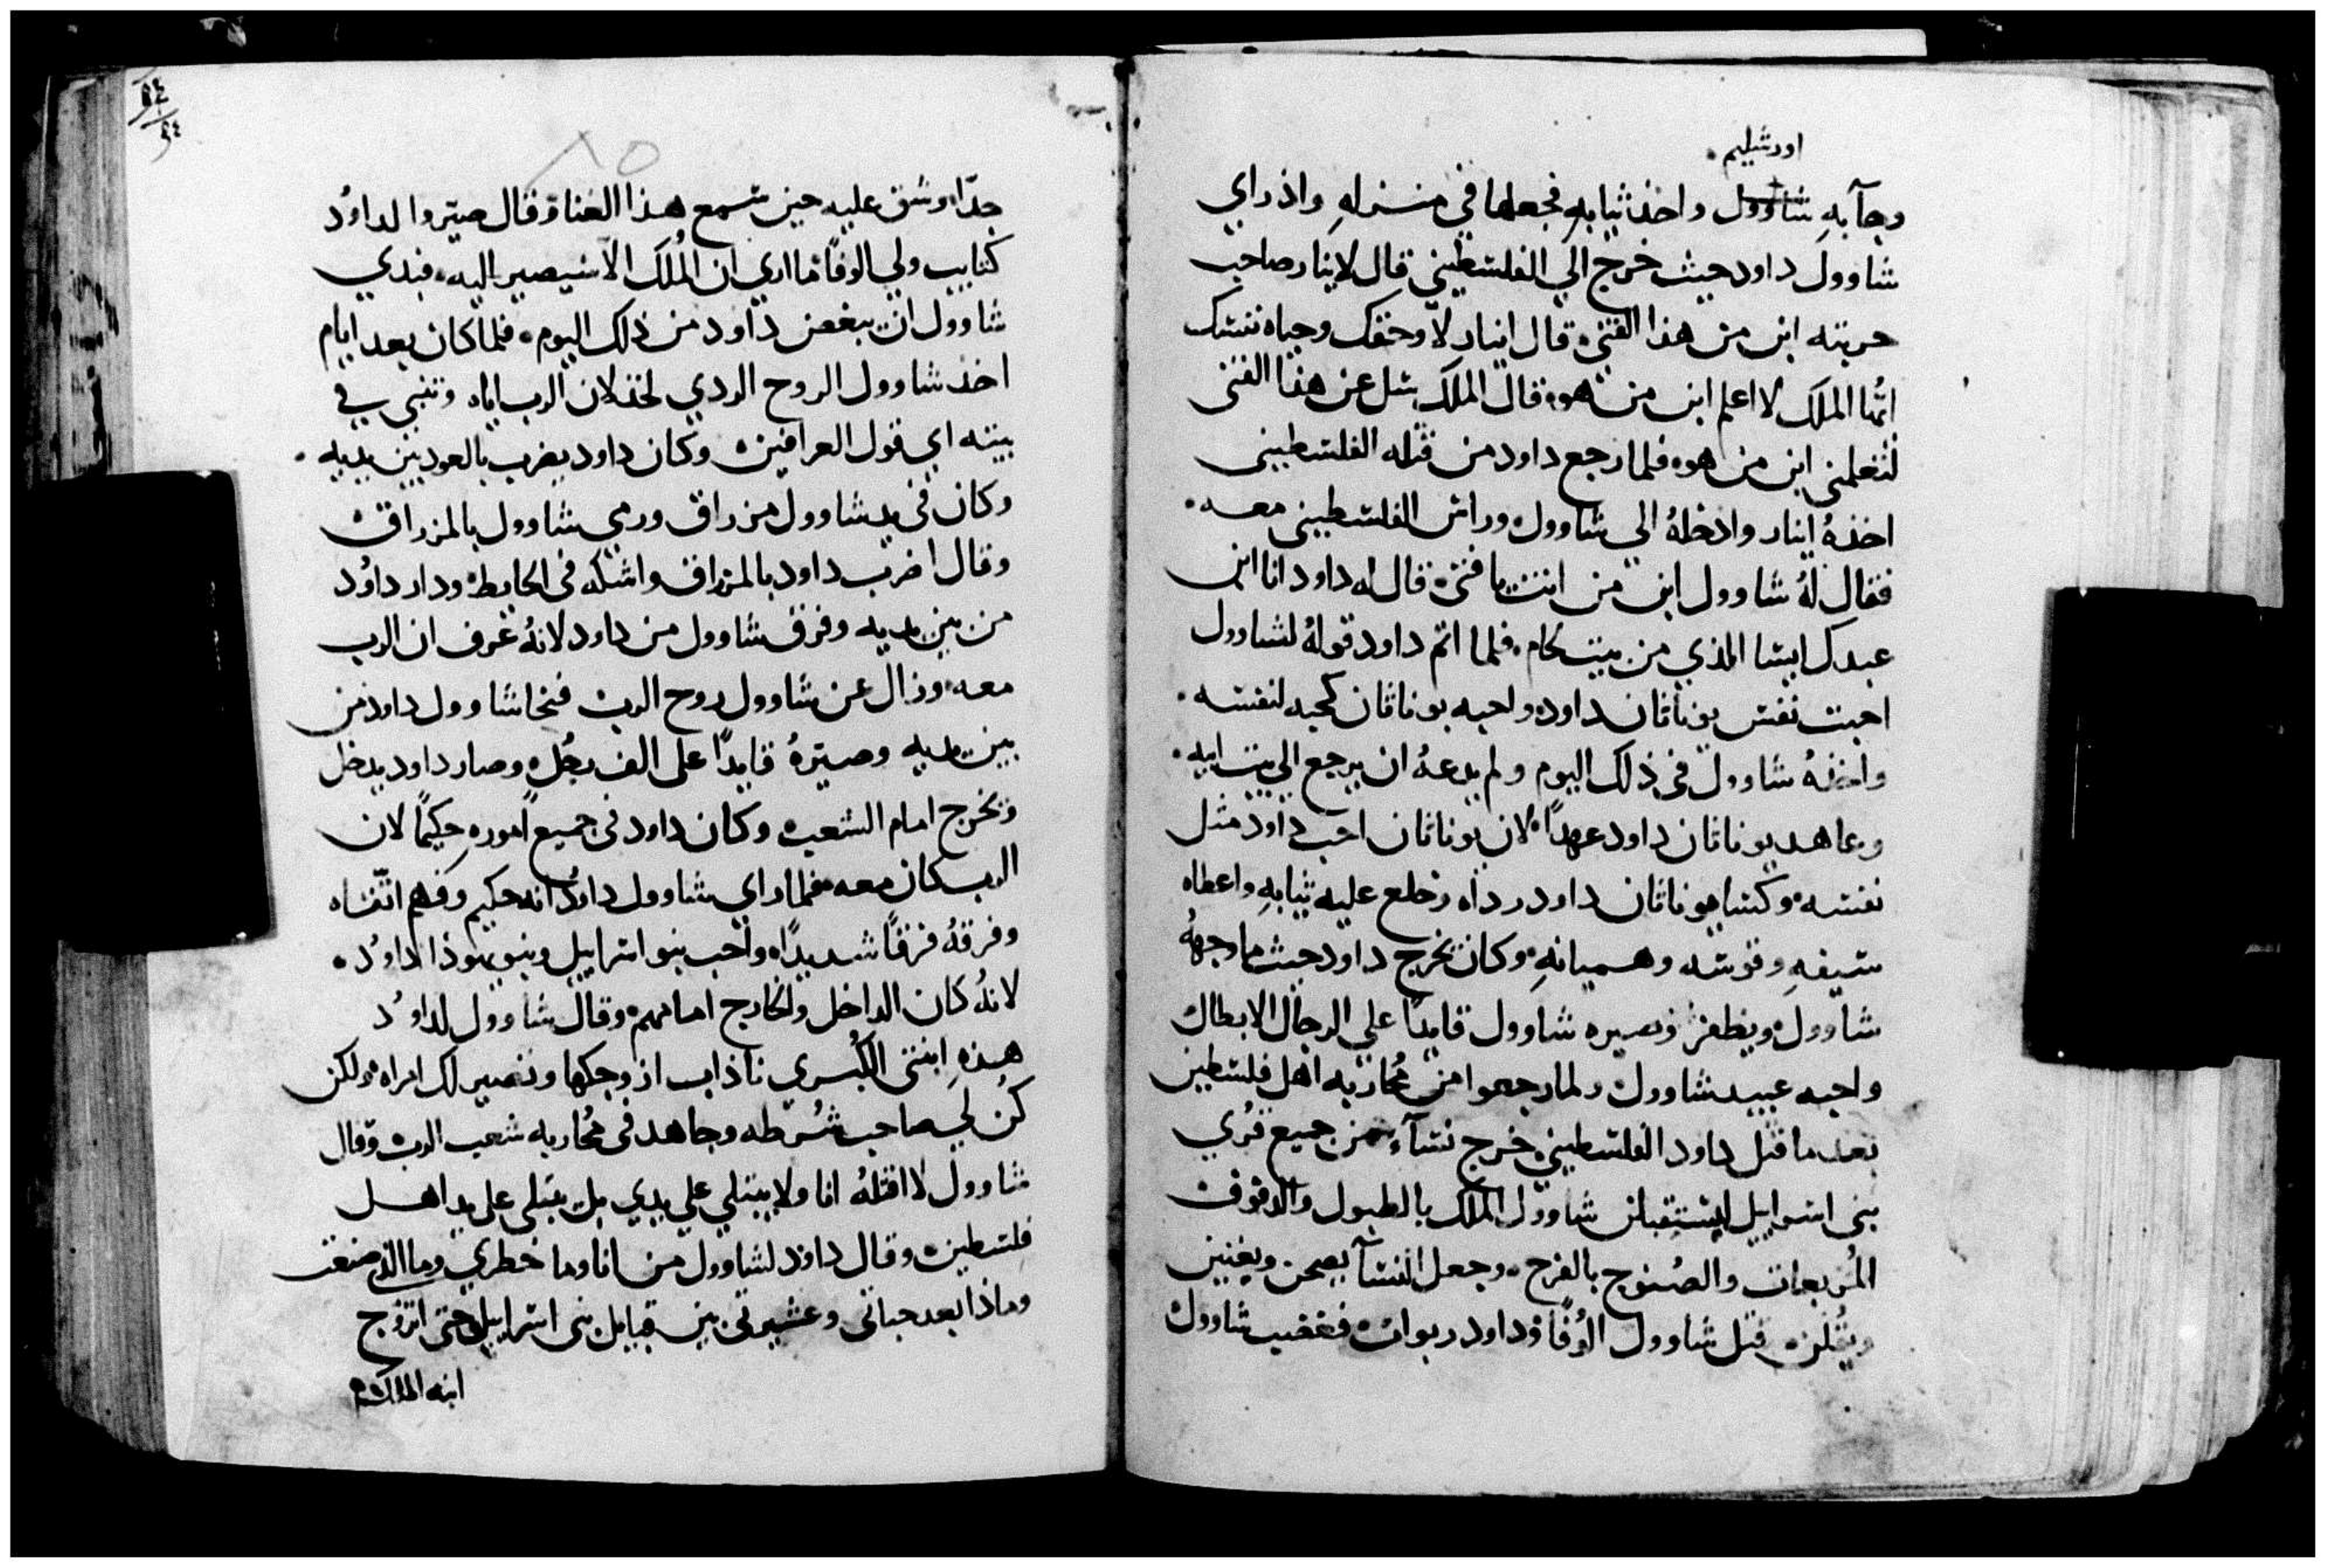 اورشليم
وجآ به شاوول واخذ ثيابهِ فجعلها في منزلهِ واذ راي
شاوول داود حيث خرج الي الفلسطيني قال لابنار صاحب
حربته ابن من هذا الفتي قال ابنار لا وحقك وحياه نفسك
ايُّها الملك لا اعلم ابن من هو قال الملك سل عن هذا الفتى
لتعلمني ابن من هو فلما رجع داود من قتله الفلسطيني
اخذهُ ابنار وادخلهُ الي شاوول وراس الفلسطيني معه
فقال لهُ شاوول ابن من انت يا فتي قال له داود انا ابن
عبدك ايشا الذي من بيت لحام فلما اتم داود قولهُ لشاوول
احبت نفس يوناثان داود واحبه يوناثان كحبه لنفسه
واخذهُ شاوول في ذلك اليوم ولم يدعهُ ان يرجع الي بيت ابيه
وعاهد يوناثان داود عهدًا لان يوناثان احب داود مثل
نفسه وكسا يوناثان داود رداه وخلع عليه ثيابهِ واعطاه
سيفهِ وقوسه وهميانهِ وكان يخرج داود حيث ما وجههُ
شاوول ويظفر وصيره شاوول قايدًا علي الرجال الابطال
واحبه عبيد شاوول ولما رجعوا من مُحاربه اهل فلسطين
بعد ما قتل داود الفلسطيني خرج نسآء من جميع قُري
بني اسراييل ليستقبلن شاوول الملك بالطبول والدفوف
المُربعات والصُنوج بالفرح وجعل النسآ يصحن ويغنين
ويقُلن قتل شاوول اُلوُفًا وداود ربوات فغضب شاوول
٨٥
جدًا وشق عليه حين سمع هذا الغنا وقال صيّروا لداوُد
كتايب ولي الوفًا ما اري ان المُلك الا سيصير اليه فبدي
شاوول ان يبغض داود من ذلك اليوم فلما كان بعد ايام
اخذ شاوول الروح الردي لخذلان الرب اياه وتنبى في
بيته اي قول العرافين وكان داود يضرب بالعود بين يديه
وكان في يد شاوول مزراق ورمي شاوول بالمزراق
وقال اضرب داود بالمزراق واشكه في الحايط ودار داوُد
من بين يديه وفرق شاوول من داود لانهُ عرف ان الرب
معه وزال عن شاوول روح الرب فنحا شاوول داود من
بين يديه وصيرهُ قايدًا على الف رجُل وصار داود يدخل
ويخرج امام الشعب وكان داود في جميع اموره حكيمًا لان
الرب كان معه فلما راي شاوول داوُد انه حكيم وفهم اتقاه
وفرقهُ فرقًا شديدًا واحب بنو اسراييل وبنو يهوذا لداوُد
لانهُ كان الداخل والخارج امامهم وقال شاوول لداوُد
هذهِ ابنتي الكُبري ناذاب ازوجكها وتصير لك امراه ولكن
كُن لي صاحب شُرطه وجاهد في مُحاربه شعب الرب وقال
شاوول لا اقتلهُ انا ولا يبتلي علي يدي بل يبتلى على يد اهل
فلسطين وقال داود لشاوول من انا وما خطري وما الذي صنعت
وماذا بعد حياتي وعشيرتي بين قبايل بني اسراييل حتى اتزوج
ابنه الملك